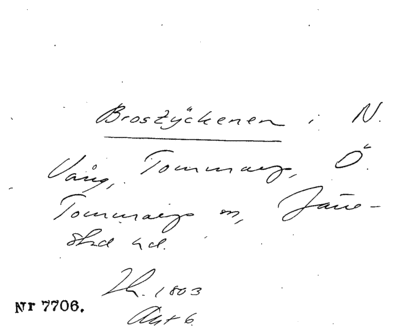 Brostyckenen i N.
Vång, Tommarp, Ö.
Tommarps sn, Järre-
stad hd.
Lh. 1803
Akt 6.
Nr 7706.